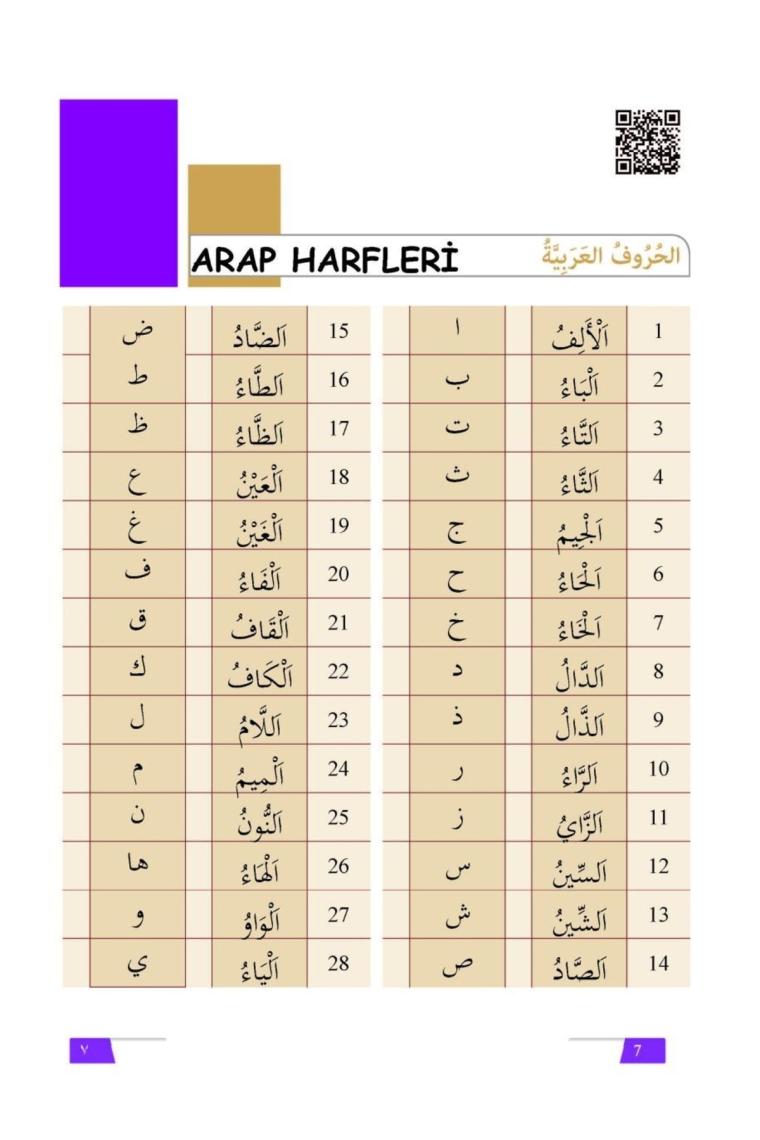 ARAP HARFLERİ
الحُرُوفُ العَرَبِيَّةُ
1 اَلْأَلِفُ ا
2 اَلْبَاءُ ب
3 اَلتَّاءُ ت
4 اَلثَّاءُ ث
5 اَلْجِيمُ ج
6 اَلْحَاءُ ح
7 اَلْخَاءُ خ
8 اَلدَّالُ د
9 اَلذَّالُ ذ
10 اَلرَّاءُ ر
11 اَلزَّايُ ز
12 اَلسِّينُ س
13 اَلشِّينُ ش
14 اَلصَّادُ ص
15 اَلضَّادُ ض
16 اَلطَّاءُ ط
17 اَلظَّاءُ ظ
18 اَلْعَيْنُ ع
19 اَلْغَيْنُ غ
20 اَلْفَاءُ ف
21 اَلْقَافُ ق
22 اَلْكَافُ ك
23 اَللَّامُ ل
24 اَلْمِيمُ م
25 اَلنُّونُ ن
26 اَلْهَاءُ ها
27 اَلْوَاوُ و
28 اَلْيَاءُ ي
٧
7